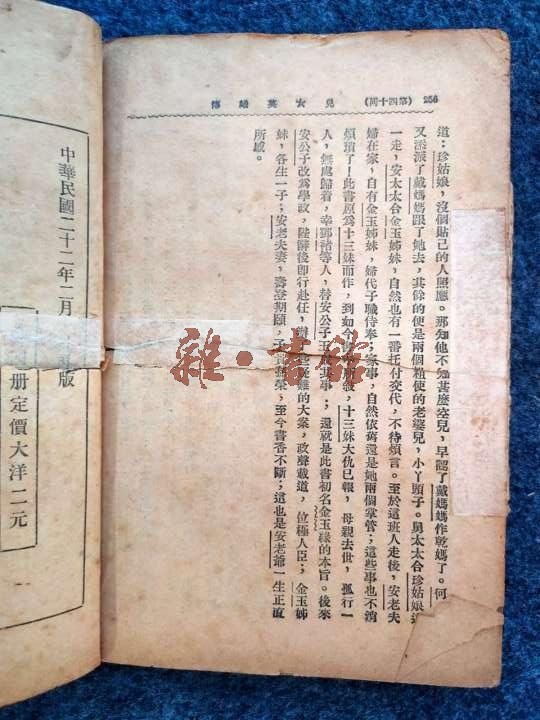 256 (第四十回) 兒女英雄傳
道：珍姑娘，沒個貼己的人照應。那知他不知甚麽空兒，早認了戴媽媽作乾媽了。何
又添派了戴媽媽跟了她去，其餘的便是兩個粗使的老婆兒，小丫頭子。舅太太合珍姑娘
一走，安太太合金玉姊妹，自然也有一番托付交代，不待煩言。至於這班人走後，安老夫
婦在家，自有金玉姊妹，婦代子職侍奉；家事，自然依舊還是她兩個掌管；這些事也不消
煩瑣了！此書原爲十三妹而作，到如今十三妹大仇已報，母親去世，孤行一
人，無處歸着，幸鄧褚等人，替安公子玉成其事；還就是此書初名金玉緣的本旨。後來
安公子改爲學政，陛辭後即行赴任，辦了些疑難的大案，政聲載道，位極人臣；金玉姊
妹，各生一子；安老夫妻，壽登期頤，子貴孫榮，至今書香不斷；這也是安老爺一生正直
所感。
中華民國二十二年二月版
册定價大洋二元
雜·書館